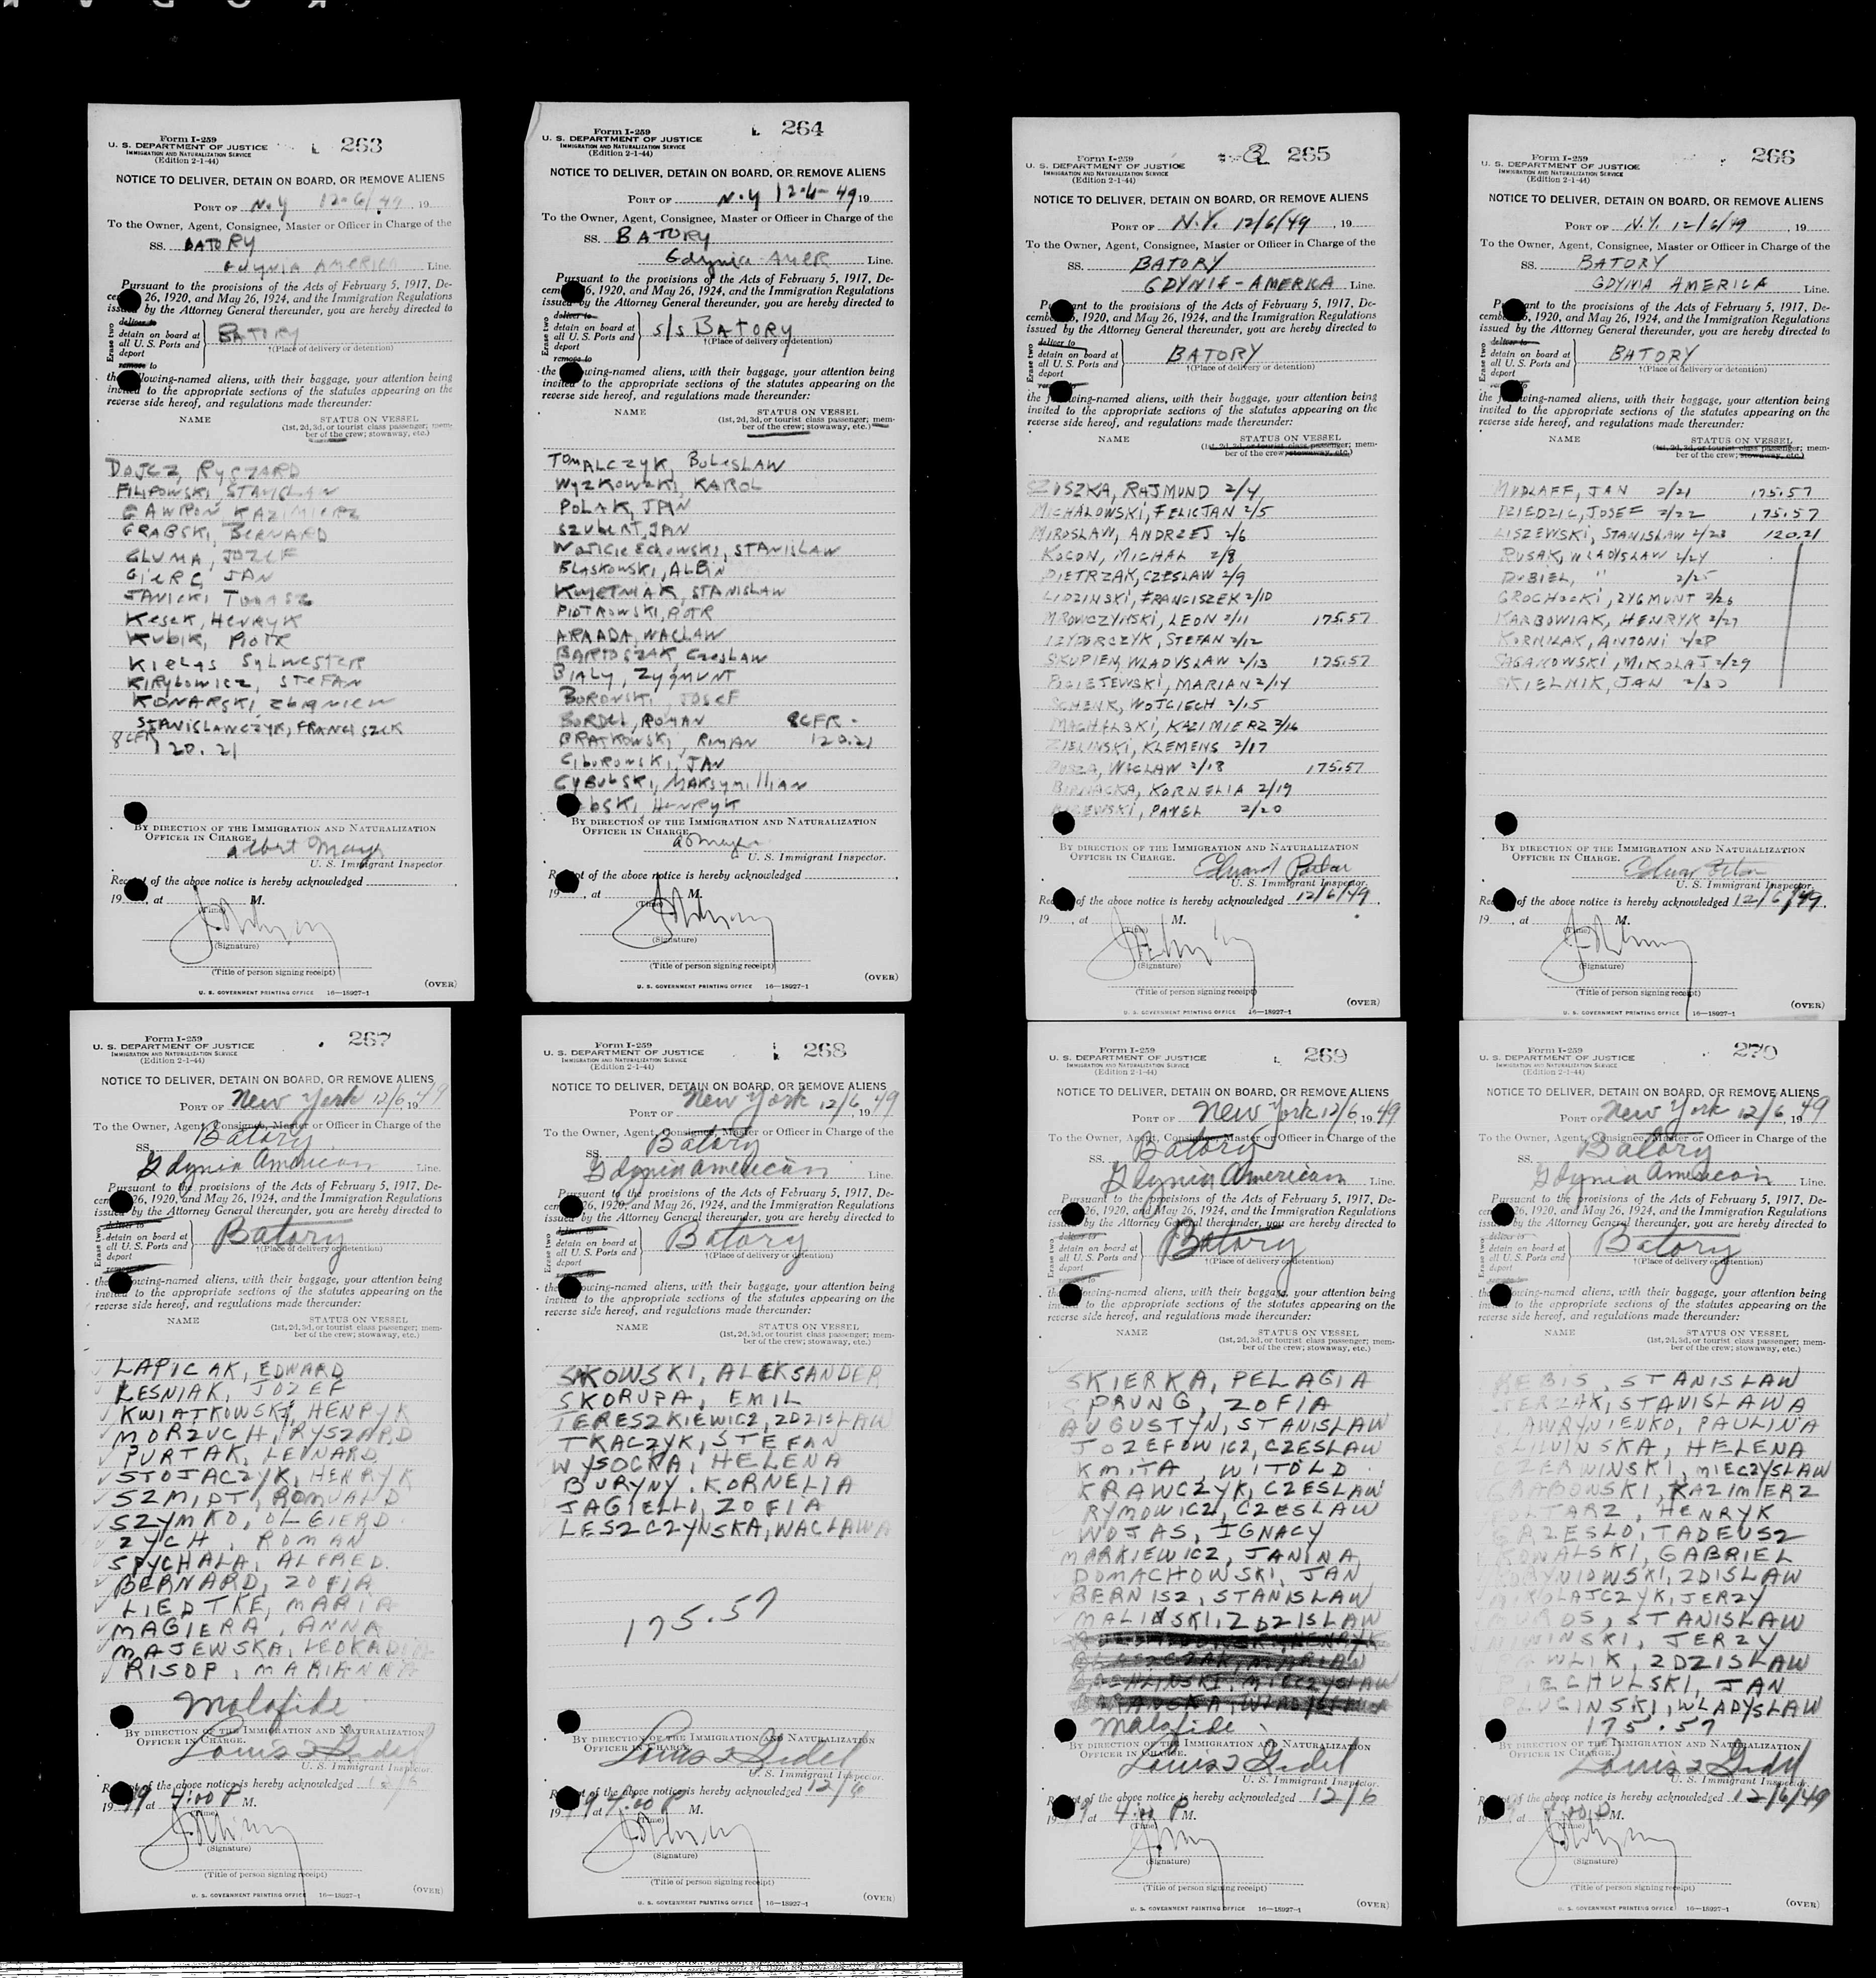 Form I-259
263
U. S. DEPARTMENT OF JUSTICE
IMMIGRATION AND NATURALIZATION SERVICE
(Edition 2-1-44)
NOTICE TO DELIVER, DETAIN ON BOARD, OR REMOVE ALIENS
PORT OF N.Y 12-6/49, 19
To the Owner, Agent, Consignee, Master or Officer in Charge of the
SS. BATORY
Gdynia AMERICA Line.
Pursuant to the provisions of the Acts of February 5, 1917, De-
26, 1920, and May 26, 1924, and the Immigration Regulations
issued by the Attorney General thereunder, you are hereby directed to
Erase two
deliver to
detain on board at
all U. S. Ports and
deport
remove to
BATORY
†(Place of delivery or detention)
the following-named aliens, with their baggage, your attention being
invited to the appropriate sections of the statutes appearing on the
reverse side hereof, and regulations made thereunder:
NAME STATUS ON VESSEL
(1st, 2d, 3d, or tourist class passenger; mem-
ber of the crew; stowaway, etc.)
DOJCZ, RYSZARD
FILIPOWSKI, STANISLAW
GAWRON KAZIMIERZ
GRABSKI, BERNARD
GLUMA, JOZEF
GIERC JAN
JANICKI TOMASZ
KESEK, HENRYK
KUBIK, PIOTR
KIELAS SYLWESTER
KIRYLOWICZ, STEFAN
KONARSKI ZBIGNIEW
STANISLAWCZYK, FRANCISZEK
8CFR
120.21
BY DIRECTION OF THE IMMIGRATION AND NATURALIZATION
OFFICER IN CHARGE.
Albert Mayer
U. S. Immigrant Inspector.
Receipt of the above notice is hereby acknowledged
19 , at M.
(Time)
(Signature)
(Title of person signing receipt)
(OVER)
U. S. GOVERNMENT PRINTING OFFICE 16—18927-1
Form I-259
264
U. S. DEPARTMENT OF JUSTICE
IMMIGRATION AND NATURALIZATION SERVICE
(Edition 2-1-44)
NOTICE TO DELIVER, DETAIN ON BOARD, OR REMOVE ALIENS
PORT OF N.Y 12-6-49 19
To the Owner, Agent, Consignee, Master or Officer in Charge of the
SS. BATORY
Gdynia-AMER Line.
Pursuant to the provisions of the Acts of February 5, 1917, De-
cember 26, 1920, and May 26, 1924, and the Immigration Regulations
issued by the Attorney General thereunder, you are hereby directed to
Erase two
deliver to
detain on board at
all U. S. Ports and
deport
remove to
S/S BATORY
†(Place of delivery or detention)
the following-named aliens, with their baggage, your attention being
invited to the appropriate sections of the statutes appearing on the
reverse side hereof, and regulations made thereunder:
NAME STATUS ON VESSEL
(1st, 2d, 3d, or tourist class passenger; mem-
ber of the crew; stowaway, etc.)
TOMALCZYK, BOLESLAW
WYZKOWSKI, KAROL
POLAK, JAN
SZUBERT, JAN
WOJCIECHOWSKI, STANISLAW
BLASKOWSKI, ALBIN
KWIETNIAK, STANISLAW
PIOTROWSKI, PIOTR
ARAADA, WACLAW
BARTOSZAK, CZESLAW
BIALY, ZYGMUNT
BOROWSKI, JOSEF
BORDEL, ROMAN 8CFR
BRATKOWSKI, ROMAN 120.21
CIBOROWSKI, JAN
CYBULSKI, MAKSYMILLIAN
HENRYK
BY DIRECTION OF THE IMMIGRATION AND NATURALIZATION
OFFICER IN CHARGE.
A Mayer
U. S. Immigrant Inspector.
Receipt of the above notice is hereby acknowledged
19 , at M.
(Time)
(Signature)
(Title of person signing receipt)
(OVER)
U. S. GOVERNMENT PRINTING OFFICE 16—18927-1
Form I-259
265
U. S. DEPARTMENT OF JUSTICE
IMMIGRATION AND NATURALIZATION SERVICE
(Edition 2-1-44)
NOTICE TO DELIVER, DETAIN ON BOARD, OR REMOVE ALIENS
PORT OF N.Y. 12/6/49, 19
To the Owner, Agent, Consignee, Master or Officer in Charge of the
SS. BATORY
GDYNIA-AMERICA Line.
Pursuant to the provisions of the Acts of February 5, 1917, De-
cember 26, 1920, and May 26, 1924, and the Immigration Regulations
issued by the Attorney General thereunder, you are hereby directed to
Erase two
deliver to
detain on board at
all U. S. Ports and
deport
remove to
BATORY
†(Place of delivery or detention)
the following-named aliens, with their baggage, your attention being
invited to the appropriate sections of the statutes appearing on the
reverse side hereof, and regulations made thereunder:
NAME STATUS ON VESSEL
(1st, 2d, 3d, or tourist class passenger; mem-
ber of the crew; stowaway, etc.)
SZOSZKA, RAJMUND 2/4
MICHALOWSKI, FELICJAN 2/5
MIROSLAW, ANDRZEJ 2/6
KOCON, MICHAL 2/8
PIETRZAK, CZESLAW 2/9
LIDZINSKI, FRANCISZEK 2/10
MROWCZYNSKI, LEON 2/11 175.57
IZYDORCZYK, STEFAN 2/12
SKUPIEN, WLADYSLAW 2/13 175.57
MARIAN 2/14
SCHENK, WOJCIECH 2/15
MACHALSKI, KAZIMIERZ 2/16
ZIELINSKI, KLEMENS 2/17
WACLAW 2/18 175.57
BIERNACKA, KORNELIA 2/19
PAWEL 2/20
BY DIRECTION OF THE IMMIGRATION AND NATURALIZATION
OFFICER IN CHARGE.
Edward
U. S. Immigrant Inspector.
Receipt of the above notice is hereby acknowledged 12/6/49
19 , at M.
(Time)
(Signature)
(Title of person signing receipt)
(OVER)
U. S. GOVERNMENT PRINTING OFFICE 16—18927-1
Form I-259
266
U. S. DEPARTMENT OF JUSTICE
IMMIGRATION AND NATURALIZATION SERVICE
(Edition 2-1-44)
NOTICE TO DELIVER, DETAIN ON BOARD, OR REMOVE ALIENS
PORT OF N.Y. 12/6/49, 19
To the Owner, Agent, Consignee, Master or Officer in Charge of the
SS. BATORY
GDYNIA AMERICA Line.
Pursuant to the provisions of the Acts of February 5, 1917, De-
cember 26, 1920, and May 26, 1924, and the Immigration Regulations
issued by the Attorney General thereunder, you are hereby directed to
Erase two
deliver to
detain on board at
all U. S. Ports and
deport
remove to
BATORY
†(Place of delivery or detention)
the following-named aliens, with their baggage, your attention being
invited to the appropriate sections of the statutes appearing on the
reverse side hereof, and regulations made thereunder:
NAME STATUS ON VESSEL
(1st, 2d, 3d, or tourist class passenger; mem-
ber of the crew; stowaway, etc.)
MUDLAFF, JAN 2/21 175.57
DZIEDZIC, JOSEF 2/22 175.57
LISZEWSKI, STANISLAW 2/23 120.21
RUSAK, WLADYSLAW 2/24
DUBIEL, " 2/25
GROCHOCKI, ZYGMUNT 2/26
KARBOWIAK, HENRYK 2/27
KORNIAK, ANTONI 2/28
SAGAKOWSKI, MIKOLAJ 2/29
SKIELNIK, JAN 2/30
BY DIRECTION OF THE IMMIGRATION AND NATURALIZATION
OFFICER IN CHARGE.
U. S. Immigrant Inspector.
Receipt of the above notice is hereby acknowledged 12/6/49.
19 , at M.
(Time)
(Signature)
(Title of person signing receipt)
(OVER)
U. S. GOVERNMENT PRINTING OFFICE 16—18927-1
Form I-259
267
U. S. DEPARTMENT OF JUSTICE
IMMIGRATION AND NATURALIZATION SERVICE
(Edition 2-1-44)
NOTICE TO DELIVER, DETAIN ON BOARD, OR REMOVE ALIENS
PORT OF New York 12/6, 1949
To the Owner, Agent, Consignee, Master or Officer in Charge of the
SS. Batory
Gdynia American Line.
Pursuant to the provisions of the Acts of February 5, 1917, De-
cember 26, 1920, and May 26, 1924, and the Immigration Regulations
issued by the Attorney General thereunder, you are hereby directed to
Erase two
deliver to
detain on board at
all U. S. Ports and
deport
remove to
Batory
†(Place of delivery or detention)
the following-named aliens, with their baggage, your attention being
invited to the appropriate sections of the statutes appearing on the
reverse side hereof, and regulations made thereunder:
NAME STATUS ON VESSEL
(1st, 2d, 3d, or tourist class passenger; mem-
ber of the crew; stowaway, etc.)
LAPICAK, EDWARD
LESNIAK, JOZEF
KWIATKOWSKI, HENRYK
MORZUCH, RYSZARD
PURTAK, LEONARD
STOJACZYK, HENRYK
SZMIDT, ROMUALD
SZYMKO, OLGIERD
ZYCH, ROMAN
SPYCHALA, ALFRED.
BERNARD, ZOFIA
LIEDTKE, MARIA
MAGIERA, ANNA
MAJEWSKA, LEOKADIA
RISOP, MARIANNA
Malafide
BY DIRECTION OF THE IMMIGRATION AND NATURALIZATION
OFFICER IN CHARGE.
Louis
U. S. Immigrant Inspector.
Receipt of the above notice is hereby acknowledged 12/6
1949 at 4:00 P M.
(Time)
(Signature)
(Title of person signing receipt)
(OVER)
U. S. GOVERNMENT PRINTING OFFICE 16—18927-1
Form I-259
268
U. S. DEPARTMENT OF JUSTICE
IMMIGRATION AND NATURALIZATION SERVICE
(Edition 2-1-44)
NOTICE TO DELIVER, DETAIN ON BOARD, OR REMOVE ALIENS
PORT OF New York 12/6, 1949
To the Owner, Agent, Consignee, Master or Officer in Charge of the
SS. Batory
Gdynia American Line.
Pursuant to the provisions of the Acts of February 5, 1917, De-
cember 26, 1920, and May 26, 1924, and the Immigration Regulations
issued by the Attorney General thereunder, you are hereby directed to
Erase two
deliver to
detain on board at
all U. S. Ports and
deport
remove to
Batory
†(Place of delivery or detention)
the following-named aliens, with their baggage, your attention being
invited to the appropriate sections of the statutes appearing on the
reverse side hereof, and regulations made thereunder:
NAME STATUS ON VESSEL
(1st, 2d, 3d, or tourist class passenger; mem-
ber of the crew; stowaway, etc.)
SIKOWSKI, ALEKSANDER
SKORUPA, EMIL
TERESZKIEWICZ, ZDZISLAW
TKACZYK, STEFAN
WYSOCKA, HELENA
BURYNY, KORNELIA
JAGIELLI, ZOFIA
LESZCZYNSKA, WACLAWA
175.57
BY DIRECTION OF THE IMMIGRATION AND NATURALIZATION
OFFICER IN CHARGE.
Louis
U. S. Immigrant Inspector.
Receipt of the above notice is hereby acknowledged 12/6
1949 at 4:00 P M.
(Time)
(Signature)
(Title of person signing receipt)
(OVER)
U. S. GOVERNMENT PRINTING OFFICE 16—18927-1
Form I-259
269
U. S. DEPARTMENT OF JUSTICE
IMMIGRATION AND NATURALIZATION SERVICE
(Edition 2-1-44)
NOTICE TO DELIVER, DETAIN ON BOARD, OR REMOVE ALIENS
PORT OF New York 12/6, 1949
To the Owner, Agent, Consignee, Master or Officer in Charge of the
SS. Batory
Gdynia American Line.
Pursuant to the provisions of the Acts of February 5, 1917, De-
cember 26, 1920, and May 26, 1924, and the Immigration Regulations
issued by the Attorney General thereunder, you are hereby directed to
Erase two
deliver to
detain on board at
all U. S. Ports and
deport
remove to
Batory
†(Place of delivery or detention)
the following-named aliens, with their baggage, your attention being
invited to the appropriate sections of the statutes appearing on the
reverse side hereof, and regulations made thereunder:
NAME STATUS ON VESSEL
(1st, 2d, 3d, or tourist class passenger; mem-
ber of the crew; stowaway, etc.)
SKIERKA, PELAGIA
SPRUNG, ZOFIA
AUGUSTYN, STANISLAW
JOZEFOWICZ, CZESLAW
KMITA, WITOLD
KRAWCZYK, CZESLAW
RYMOWICZ, CZESLAW
WOJAS, IGNACY
MARKIEWICZ, JANINA
DOMACHOWSKI, JAN
BERNISZ, STANISLAW
MALINSKI, ZDZISLAW
HENRYK
BLASZCZAK, MARIAN
MIECZYSLAW
BARANSKA, WLADYSLAWA
Malafide
BY DIRECTION OF THE IMMIGRATION AND NATURALIZATION
OFFICER IN CHARGE.
Louis
U. S. Immigrant Inspector.
Receipt of the above notice is hereby acknowledged 12/6
1949 at 4:00 P M.
(Time)
(Signature)
(Title of person signing receipt)
(OVER)
U. S. GOVERNMENT PRINTING OFFICE 16—18927-1
Form I-259
270
U. S. DEPARTMENT OF JUSTICE
IMMIGRATION AND NATURALIZATION SERVICE
(Edition 2-1-44)
NOTICE TO DELIVER, DETAIN ON BOARD, OR REMOVE ALIENS
PORT OF New York 12/6, 1949
To the Owner, Agent, Consignee, Master or Officer in Charge of the
SS. Batory
Gdynia American Line.
Pursuant to the provisions of the Acts of February 5, 1917, De-
cember 26, 1920, and May 26, 1924, and the Immigration Regulations
issued by the Attorney General thereunder, you are hereby directed to
Erase two
deliver to
detain on board at
all U. S. Ports and
deport
remove to
Batory
†(Place of delivery or detention)
the following-named aliens, with their baggage, your attention being
invited to the appropriate sections of the statutes appearing on the
reverse side hereof, and regulations made thereunder:
NAME STATUS ON VESSEL
(1st, 2d, 3d, or tourist class passenger; mem-
ber of the crew; stowaway, etc.)
KEBIS, STANISLAW
STANISLAWA
LAWRYNIENKO, PAULINA
SLIWINSKA, HELENA
CZERWINSKI, MIECZYSLAW
GRABOWSKI, KAZIMIERZ
HENRYK
GRZESLO, TADEUSZ
KOWALSKI, GABRIEL
KORYNIOWSKI, ZDISLAW
MIKOLAJCZYK, JERZY
MUROS, STANISLAW
NIWINSKI, JERZY
PAWLIK, ZDZISLAW
PIECHULSKI, JAN
PLUCINSKI, WLADYSLAW
175.57
BY DIRECTION OF THE IMMIGRATION AND NATURALIZATION
OFFICER IN CHARGE.
Louis
U. S. Immigrant Inspector.
Receipt of the above notice is hereby acknowledged 12/6/49
19 at 4:00 P M.
(Time)
(Signature)
(Title of person signing receipt)
(OVER)
U. S. GOVERNMENT PRINTING OFFICE 16—18927-1